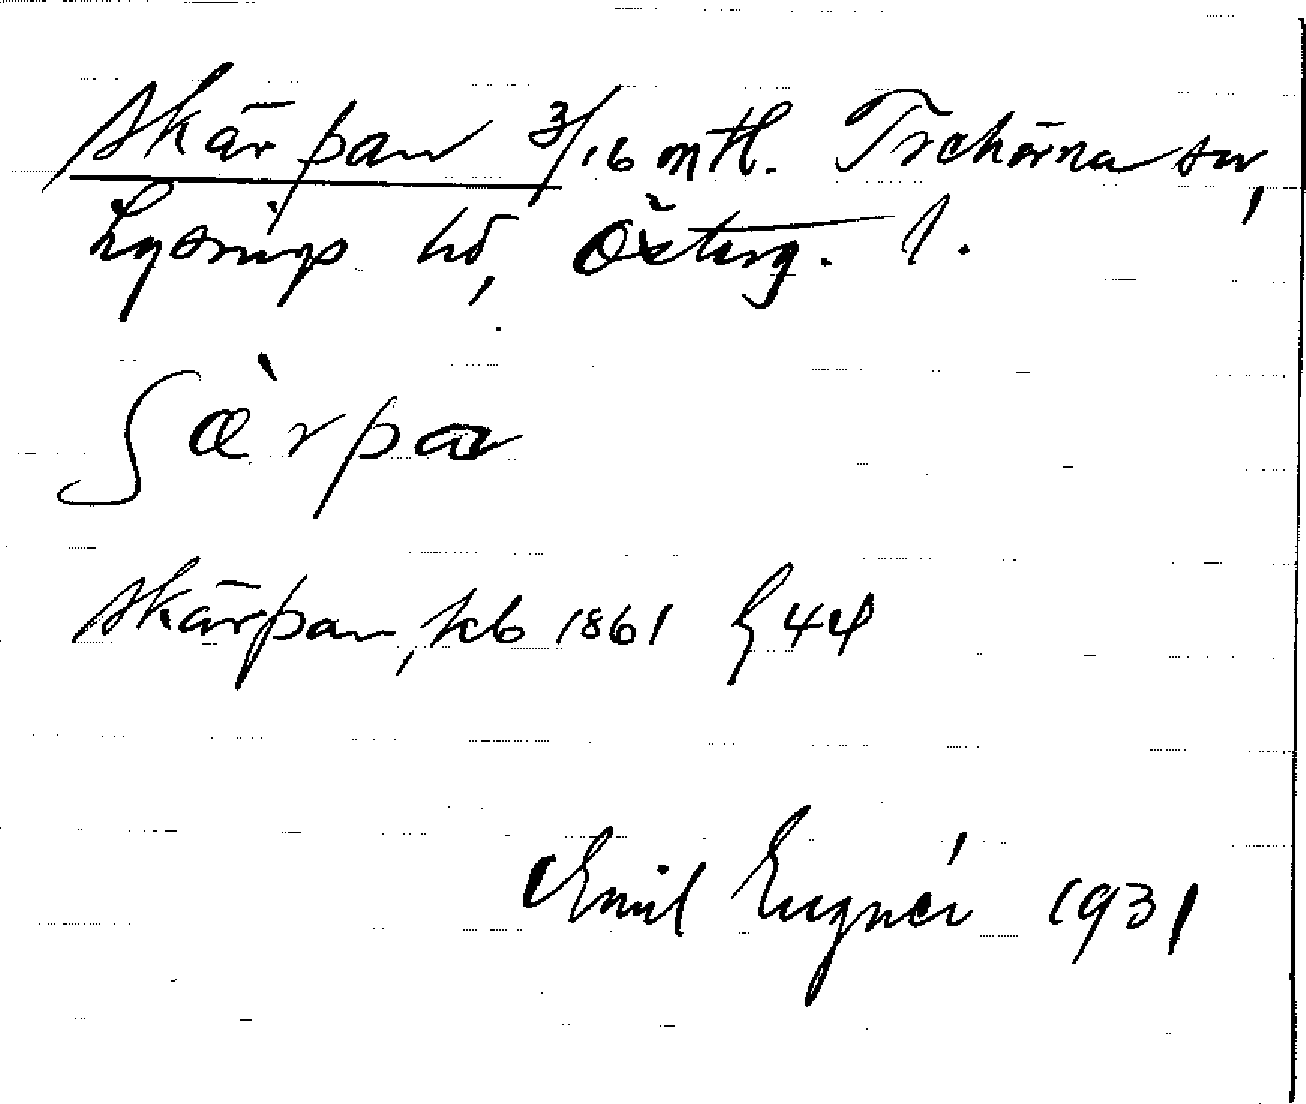 Skärpan 3/16 mtl. Tvehörna sn,
Lysings hd, Österg. l.
ʃærpa
Skärpan, kb 1861 § 44
Emil Eugnér 1931